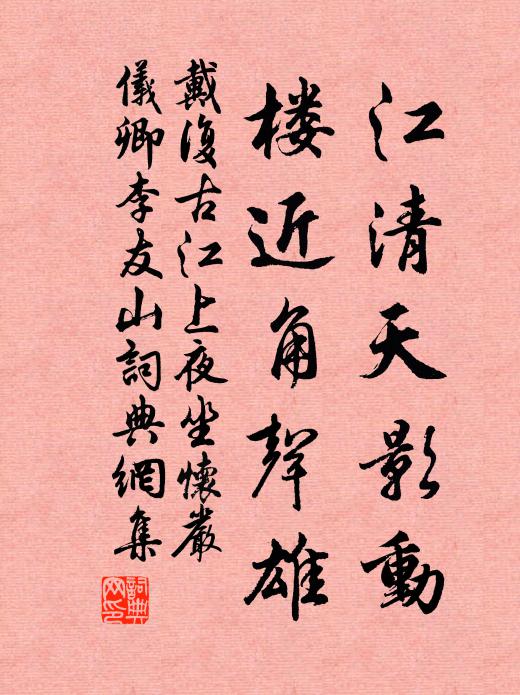 江清天影動
楼近角聲雄
戴復古江上夜坐懷嚴
儀卿李友山詞典網集
詞典网印